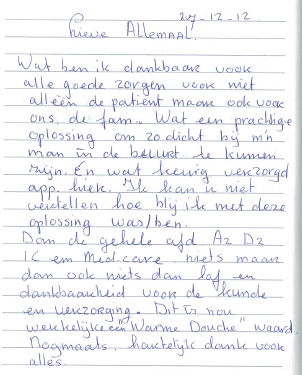 27-12-12
Lieve Allemaal.
Wat ben ik dankbaar voor
alle goede zorgen voor niet
alléén de patient maar ook voor
ons, de fam.. Wat een prachtige
oplossing om zo dicht bij m'n
man in de beurt te kunnen
zijn. En wat keurig verzorgd
app. hiek. Ik kan u niet
vertellen hoe blij ik met deze
oplossing was/ben.
Dan de gehele afd A2 D2
IC em Med. care niets maar
dan ook niets dan lof en
dankbaarheid voor de kunde
en verzorging. Dit is nou
werkelijk een "Warme Douche" waard.
Nogmaals, hartelijk dank voor
alles.